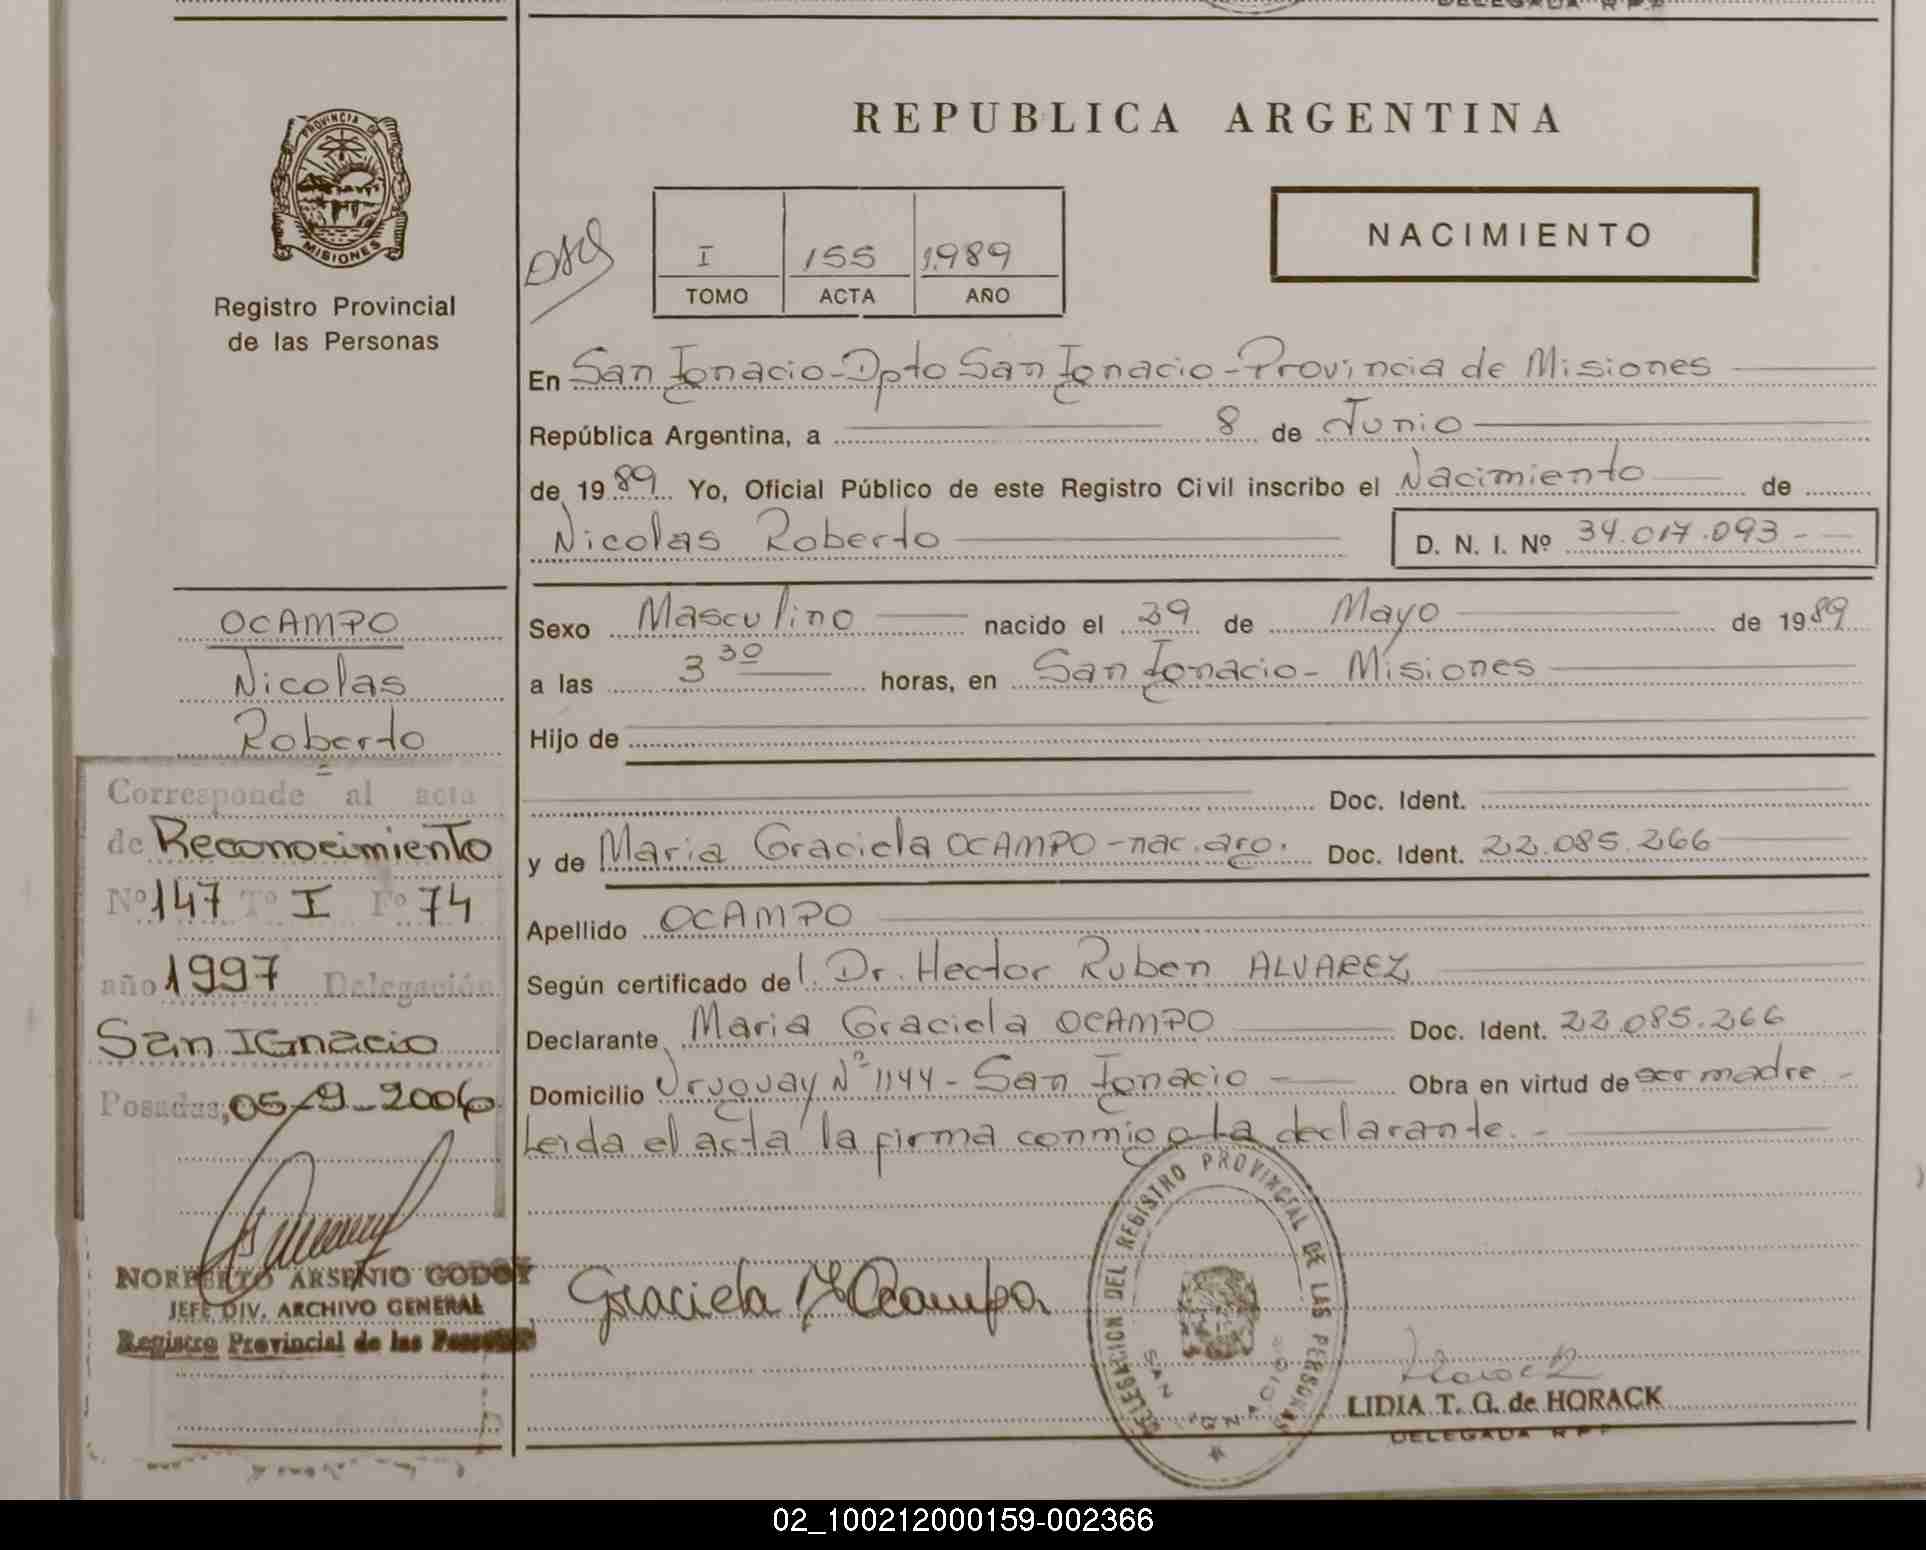 REPUBLICA ARGENTINA
PROVINCIA DE
MISIONES
Registro Provincial
de las Personas
I 155 1989
TOMO ACTA AÑO
NACIMIENTO
En San Ignacio-Dpto San Ignacio-Provincia de Misiones
República Argentina, a 8 de Junio
de 1989 Yo, Oficial Público de este Registro Civil inscribo el Nacimiento de
Nicolas Roberto D. N. I. Nº 34.017.093-
Sexo Masculino nacido el 29 de Mayo de 1989
a las 3 30 horas, en San Ignacio- Misiones
Hijo de
Doc. Ident.
y de Maria Graciela OCAMPO-nac.arg. Doc. Ident. 22.085.266
Apellido OCAMPO
Según certificado del Dr. Hector Ruben ALVAREZ
Declarante Maria Graciela OCAMPO Doc. Ident. 22.085.266
Domicilio Uruguay Nº 1144- San Ignacio - Obra en virtud de ser madre.-
Leida el acta la firma conmigo la declarante.-
Graciela M Ocampo
DELEGACION DEL REGISTRO PROVINCIAL DE LAS PERSONAS
SAN IGNACIO
LIDIA T. G. de HORACK
DELEGADA R P P
OCAMPO
Nicolas
Roberto
Corresponde al acta
de Reconocimiento
Nº 147 Tº I Fº 74
año 1997 Delegación
San IGnacio
Posadas, 05-9-2006
NORBERTO ARSENIO GODOY
JEFE DIV. ARCHIVO GENERAL
Registro Provincial de las Personas
02_100212000159-002366